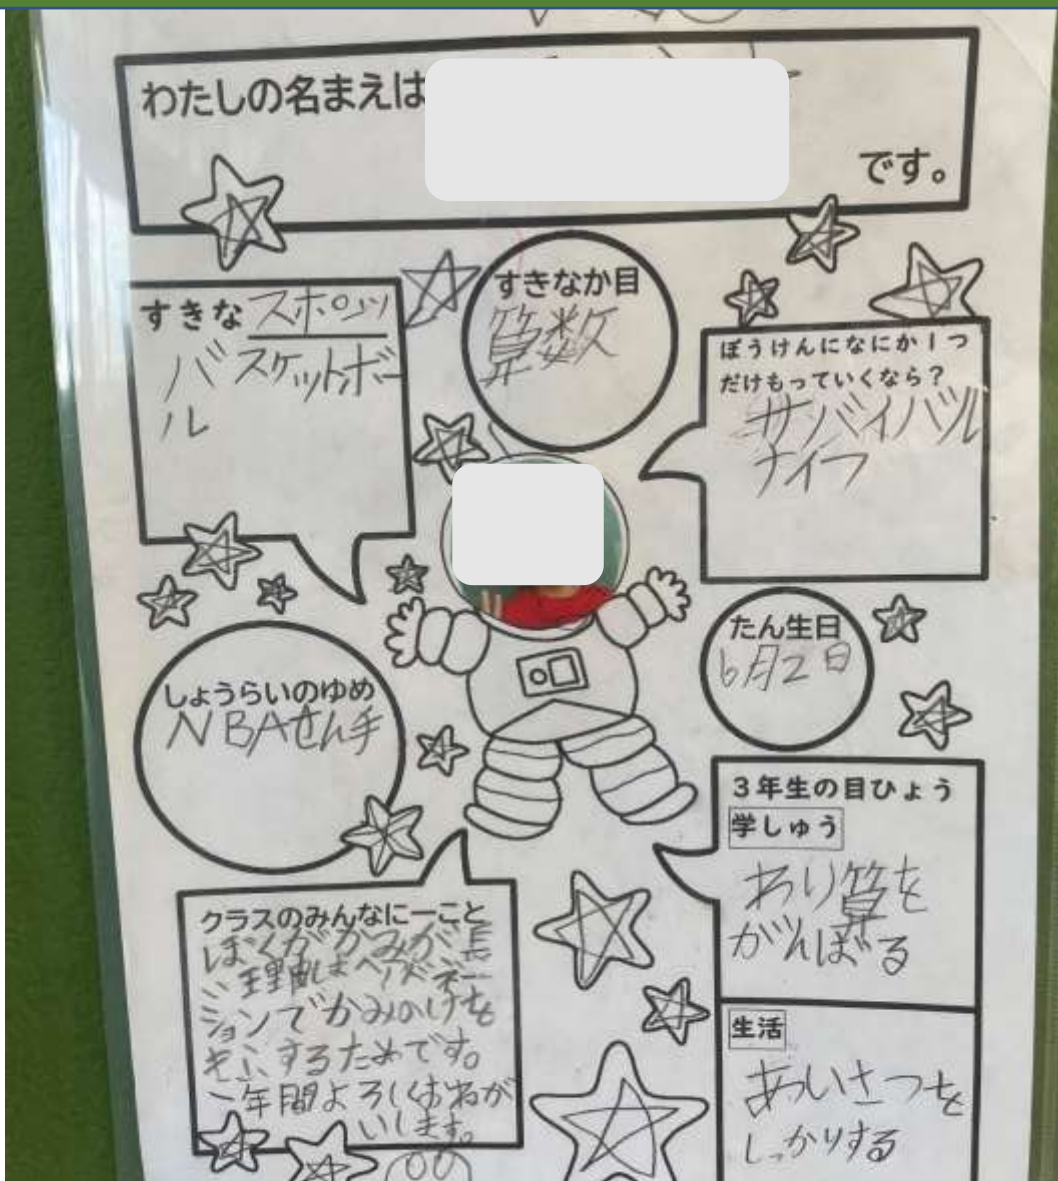 わたしの名まえは
です。
すきなスポーツ
バスケットボー
ル
すきなか目
算数
ぼうけんになにか1つ
だけもっていくなら?
サバイバル
ナイフ
たん生日
6月2日
しょうらいのゆめ
NBAせん手
3年生の目ひょう
学しゅう
わり算を
がんばる
生活
あいさつを
しっかりする
クラスのみんなに一こと
ぼくがかみが長
い理由はヘアドネー
ションでかみのけを
きふするためです。
一年間よろしくおねが
いします。